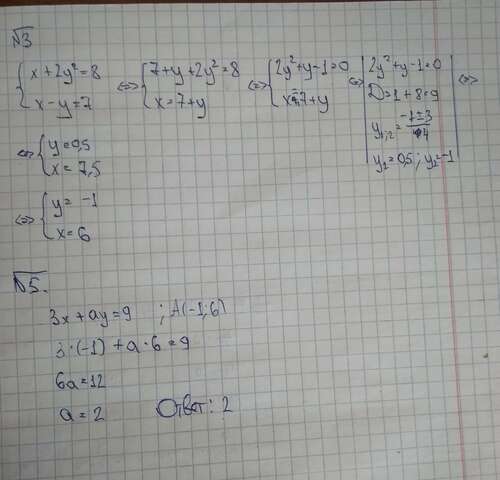 №3
{x+2y²=8 ⇔ {7+y+2y²=8 ⇔ {2y²+y-1=0 ⇔ |2y²+y-1=0 | ⇔
{x-y=7 {x=7+y {x=7+y |D=1+8=9
y₁;₂=(-1±3)/4
y₁=0,5; y₂=-1
⇔ {y=0,5
{x=7,5
⇔ {y=-1
{x=6
№5.
3x+ay=9 ; A(-1;6)
3·(-1)+a·6=9
6a=12
a=2 Ответ: 2